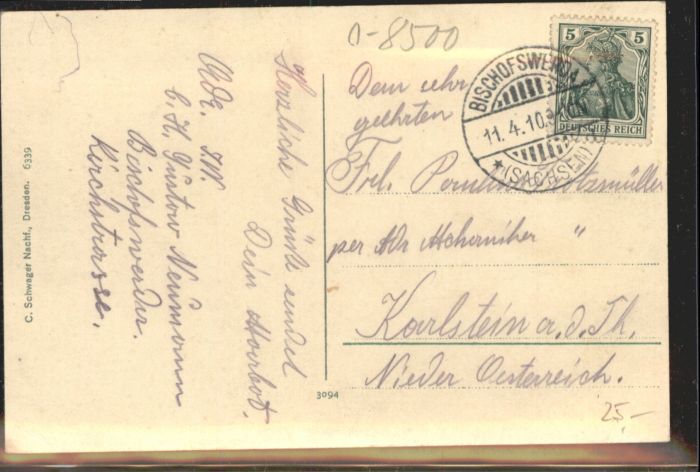 o-8500
5 5
DEUTSCHES REICH
BISCHOFSWERDA
11.4.10.
* (SACHSEN)
Herzliche Grüße sendet
Dein
Adr.
b. H. Gustav Neumann
Bischofswerda.
Kirchstrasse.
C. Schwager Nachf., Dresden. 6339
3094
Dem sehr
geehrten
Frl.
per Adr "
Karlstein a. d. Th.
Nieder Oesterreich.
25,-